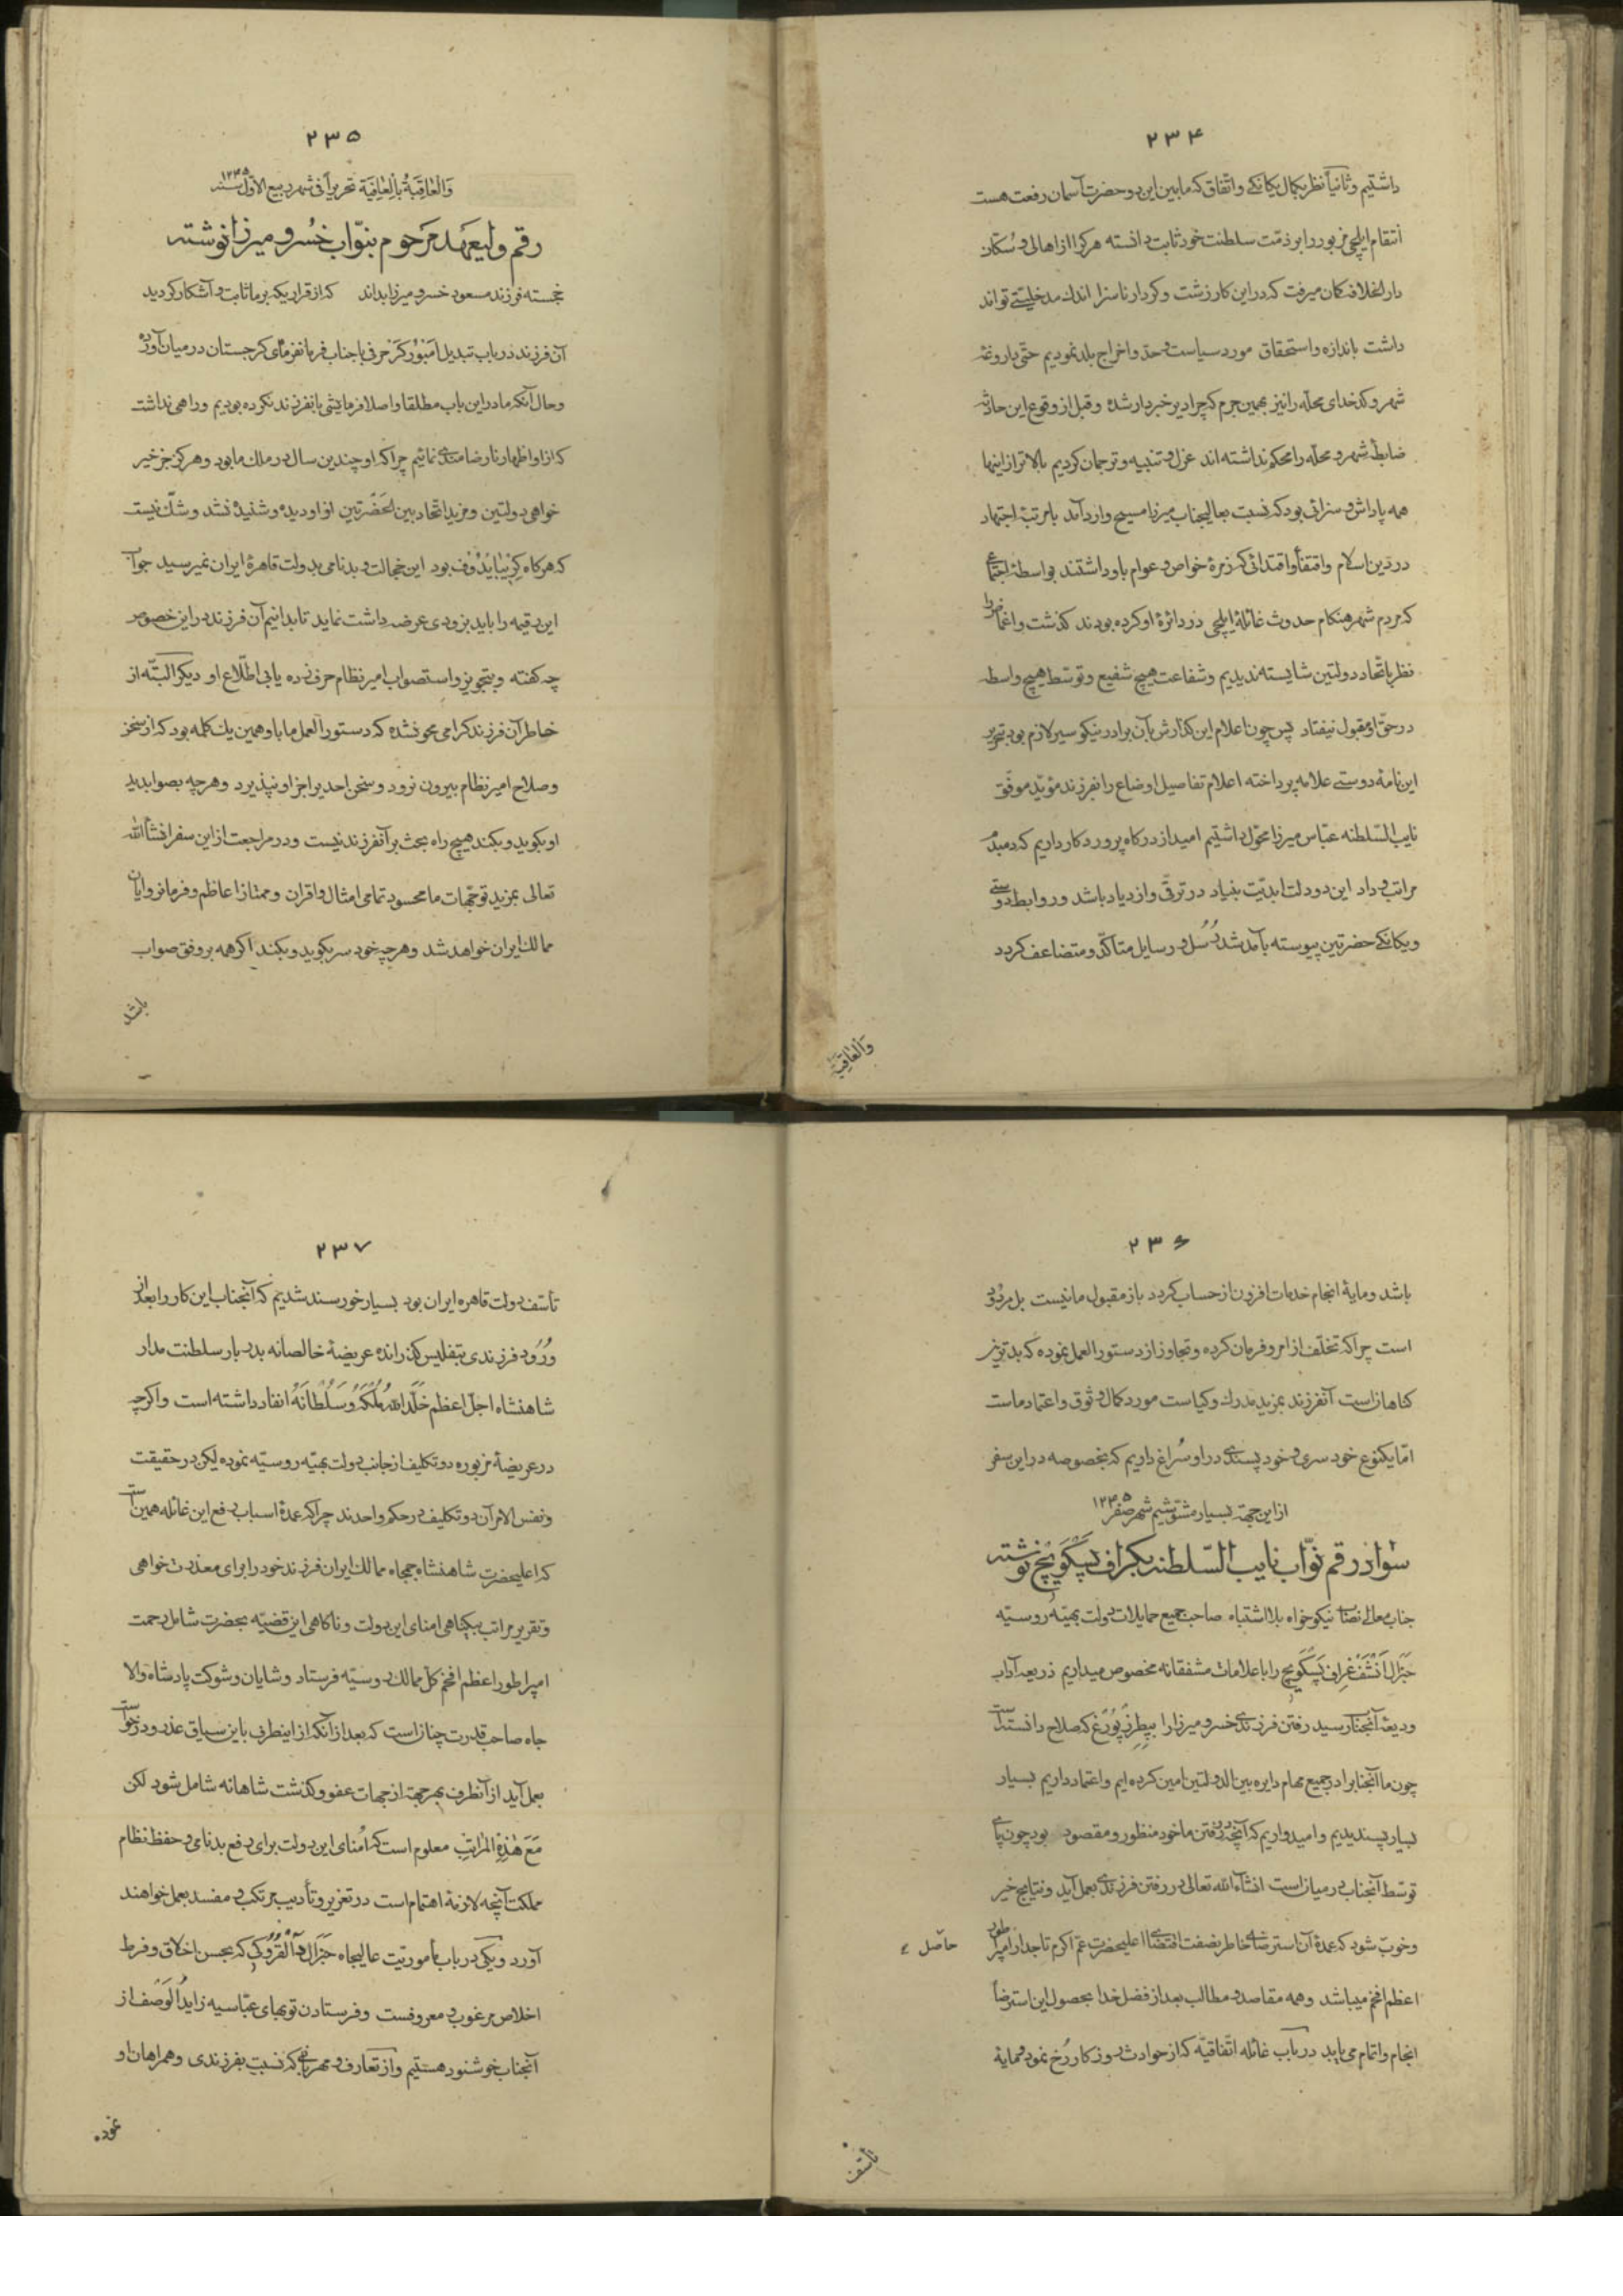 ۲۳۴
داشتیم و ثانیاً نظر بکمال یکانکی و اتّفاق که مابین این دو حضرت آسمان رفعت هست
انتقام ایلچی مزبور را بر ذمّت سلطنت خود ثابت دانسته هر کرا از اهالی و سُکّان
دارالخلافه کمان میرفت که در این کار زشت و کردار ناسزا اندک مدخلیّتی تواند
داشت باندازه و استحقاق مورد سیاست و حدّ و اخراج بلد نمودیم حتّی داروغهٔ
شهر و کدخدای محلّه را نیز بهمین جرم که چرا دیر خبردار شده و قبل از وقوع این حادثه
ضابطهٔ شهر و محلّه را محکم نداشته اند عزل و تنبیه و ترجمان کردیم بالاتر از اینها
همه پاداش و سزائی بود که نسبت بعالیجناب میرزا مسیح وارد آمد با مرتبهٔ اجتهاد
در دین اسلام و اقتفأ و اقتدائی که زمرهٔ خواص و عوام باو داشتند بواسطهٔ اجتماعی
که مردم شهر هنکام حدوث غائلهٔ ایلچی در دائرهٔ او کرده بودند کذشت و اغماض را
نظر باتّحاد دولتین شایسته ندیدیم و شفاعت هیچ شفیع و توسّط هیچ واسطه
در حقّ او مقبول نیفتاد پس چون اعلام این کذارش بآن برادر نیکو سیر لازم بود بتحریر
این نامهٔ دوستی علامه پرداخته اعلام تفاصیل اوضاع را بفرزند مؤیّد موفّق
نایب السّلطنه عبّاس میرزا محوّل داشتیم امید از درکاه پروردکار داریم که دمبدم
مراتب وداد این دو دولت ابدیّت بنیاد در ترقّی و ازدیاد باشد و روابط دوستی
و یکانکی حضرتین پیوسته بآمد شد رُسُل و رسایل متأکّد و متضاعف کردد
والعٰاقِبة
۲۳۵
وَالعٰاقِبَةُ بِالعٰافِیَة تحریراً فی شهر ربیع الاوّل سنه ۱۲۴۵
رقم ولیعهد مرحوم بنوّاب خسرو میرزا نوشته
خجسته فرزند مسعود خسرو میرزا بداند که از قراریکه بر ما ثابت و آشکار کردید
آن فرزند در باب تبدیل اَمبُورکَر حرفی با جناب فرمانفرمای کرجستان در میان آورده
و حال آنکه ما در این باب مطلقا و اصلا فرمایشی بانفرزند نکرده بودیم و راهی نداشت
که از او اظهار نارضامندی نمائیم چرا که او چندین سال در ملک ما بود و هرکز جز خیر
خواهی دولتین و مزید اتّحاد بین الحَضرتین از او دیده و شنیده نشد و شک نیست
که هرکاه کریبٰایدُوف بود این خجالت و بدنامی بدولت قاهرهٔ ایران نمیرسید جواب
این رقیمه را باید بزودی عرضه داشت نماید تا بدانیم آن فرزند در این خصوص
چه کفته و بتجویز و استصواب امیر نظام حرف زده یا بی اطّلاع او دیکر البتّه از
خاطر آن فرزند کرامی محو نشده که دستورالعمل ما باو همین یک کلمه بود که از سخن
و صلاح امیر نظام بیرون نرود و سخن احدیرا جز او نپذیرد و هرچه بصوابدید
او بکوید و بکند هیچ راه بحث بر آنفرزند نیست و در مراجعت از این سفر انشأ الله
تعالی بمزید توجّهات ما محسود تمامی امثال و اقران و ممتاز از اعاظم و فرمانروایان
ممالک ایران خواهد شد و هرچه خود سر بکوید و بکند اکر همه بر وفق صواب
باشد
۲۳۶
باشد و مایهٔ انجام خدمات افزون از حساب کردد باز مقبول ما نیست بل مردود
است چرا که تخلّف از امر و فرمان کرده و تجاوز از دستورالعمل نموده که بدترین
کناهان است آنفرزند بمزید مدرک و کیاست مورد کمال وثوق و اعتماد ماست
امّا یکنوع خود سری و خود پسندی در او سُراغ داریم که بخصوصه در این سفر
از این جهة بسیار مشوّشیم شهر صفر ۱۲۴۵
سواد رقم نوّاب نایب السّلطنه بکراف بسکویچ نوشته
جناب معالی نصاب نیکو خواه بلا اشتباه صاحب جمیع حمایلات دولت بهیّهٔ روسیّه
جَنرال اَنشَف غراف پَسکَویچ را با علامات مشفقانه مخصوص میداریم ذریعهٔ آداب
ودیعهٔ آنجناب رسید رفتن فرزندی خسرو میرزا را بپِطِرزبُورغ که صلاح دانسته است
چون ما آنجنابرا در جمیع مهام دایره بین الدولتین امین کرده ایم و اعتماد داریم بسیار
بسیار پسندیدیم و امیدواریم که آنچه در رفتن ما خود منظور و مقصود بود چون پای
توسّط آنجناب در میان است انشاءالله تعالی در رفتن فرزندی بعمل آید و نتایج خیر
و خوب شود که عمدهٔ آن استرضای خاطر نصفت اقتضای اعلیحضرت عمّ اکرم تاجدار امپراطور
حاصل
اعظم افخم میباشد و همه مقاصد و مطالب بعد از فضل خدا بحصول این استرضأ
انجام و اتمام می یابد در باب غائله اتّفاقیّه که از حوادث روزکار رُخ نمود و مایهٔ
تأسّف
۲۳۷
تأسّف دولت قاهره ایران بود بسیار خورسند شدیم که آنجناب این کار را بعد از
ورُود فرزندی بتفلیس کذرانده عریضهٔ خالصانه بدربار سلطنت مدار
شاهنشاه اجل اعظم خلّد الله مُلکَهُ وسُلطانَهُ انفاد داشته است و اکرچه
در عریضهٔ مزبوره دو تکلیف از جانب دولت بهیّه روسیّه نموده لیکن در حقیقت
و نفس الامر آن دو تکلیف در حکم واحدند چرا که عمدهٔ اسباب دفع این غائله همین است
که اعلیحضرت شاهنشاه جمجاه ممالک ایران فرزند خود را برای معذرت خواهی
و تقریر مراتب بیکناهی امنای این دولت و ناکاهی این قضیّه بحضرت شامل رحمت
امپراطور اعظم افخم کلّ ممالک روسیّه فرستاد و شایان و شوکت پادشاه والا
جاه صاحب قدرت چنان است که بعد از آنکه از اینطرف باین سیاق عذر و درخواست
بعمل آید از آنطرف بهر جهة از جهات عفو و کذشت شاهانه شامل شود لکن
مَعَ هٰذِهِ المَراتِب معلوم است که اُمنای این دولت برای دفع بدنامی و حفظ نظام
مملکت آنچه لازمهٔ اهتمام است در تعزیر و تأدیب مرتکب و مفسد بعمل خواهند
آورد و نیکی در باب مأموریّت عالیجاه جَنرال دٰالقُرُوکی که بحسن اخلاق و فرط
اخلاص مرغوب و معروفست و فرستادن توبهای عبّاسیه زاید الوَصف از
آنجناب خوشنود هستیم و از تعارف و مهربانی که نسبت بفرزندی و همراهان او
نموده